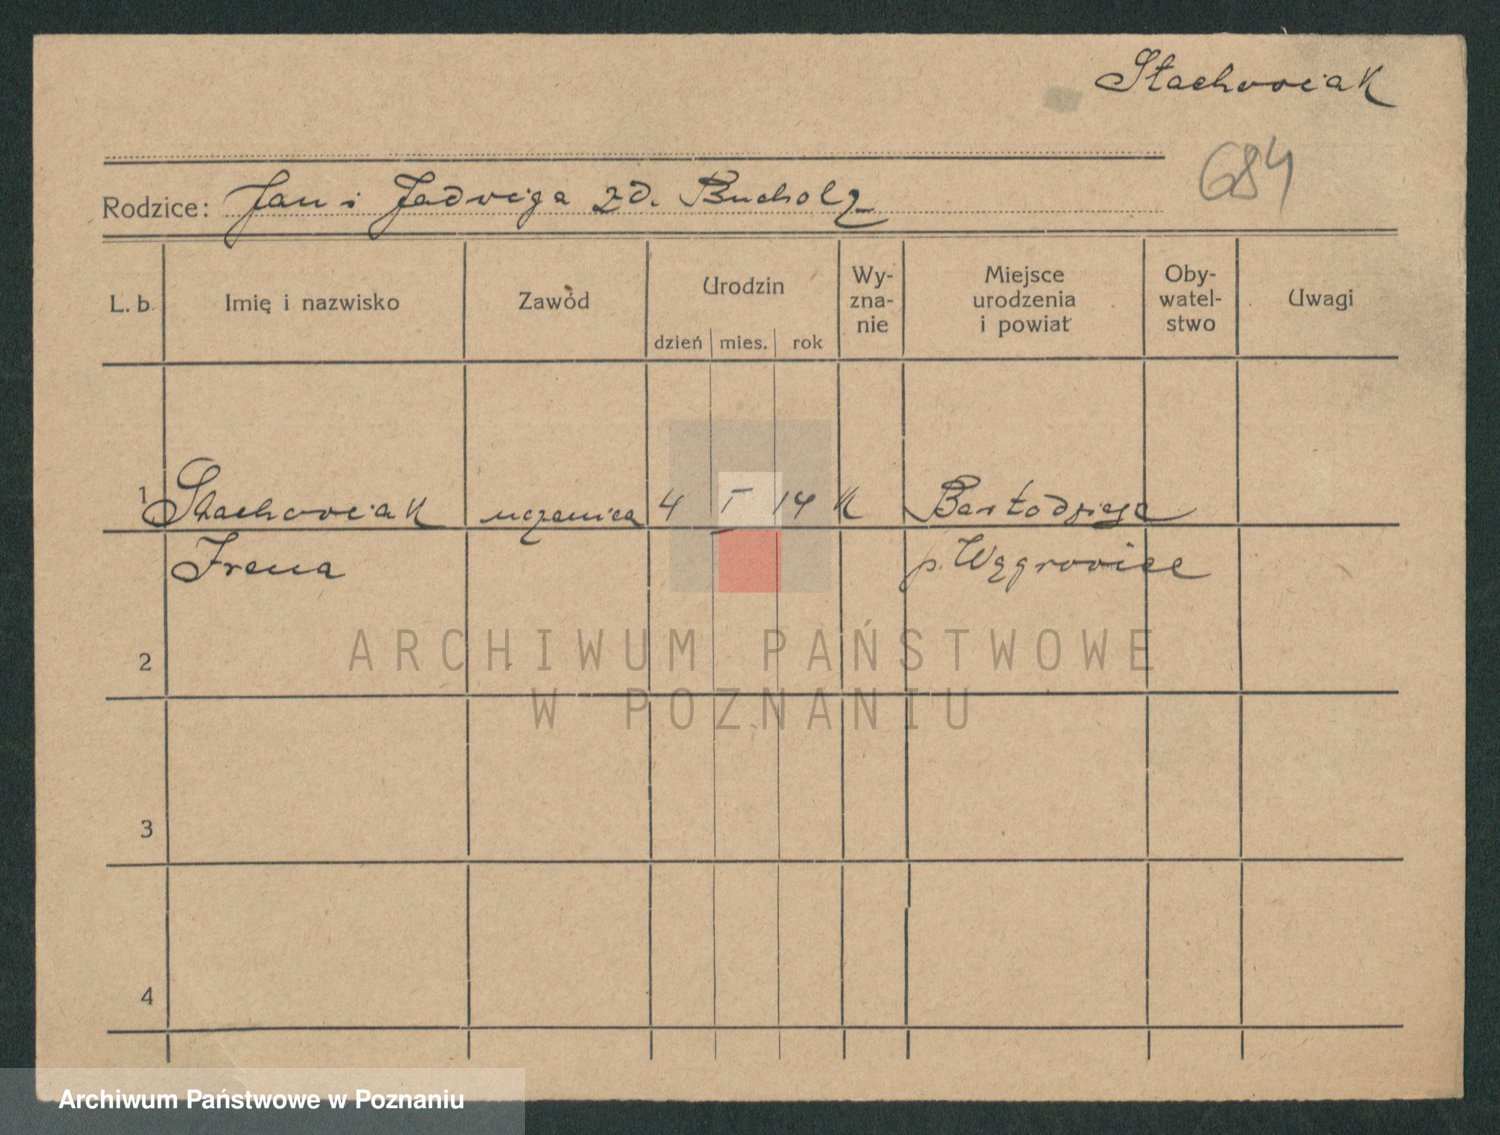 Stachowiak
684
Rodzice: Jan i Jadwiga zd. Bucholz
L. b. Imię i nazwisko Zawód Urodzin Wy- Miejsce Oby- Uwagi
zna- urodzenia watel-
nie i powiat stwo
dzień mies. rok
1 Stachowiak uczenica 4 I 14 K Bartodzieje
Irena p. Wągrowiec
2
ARCHIWUM PAŃSTWOWE
W POZNANIU
3
4
Archiwum Państwowe w Poznaniu